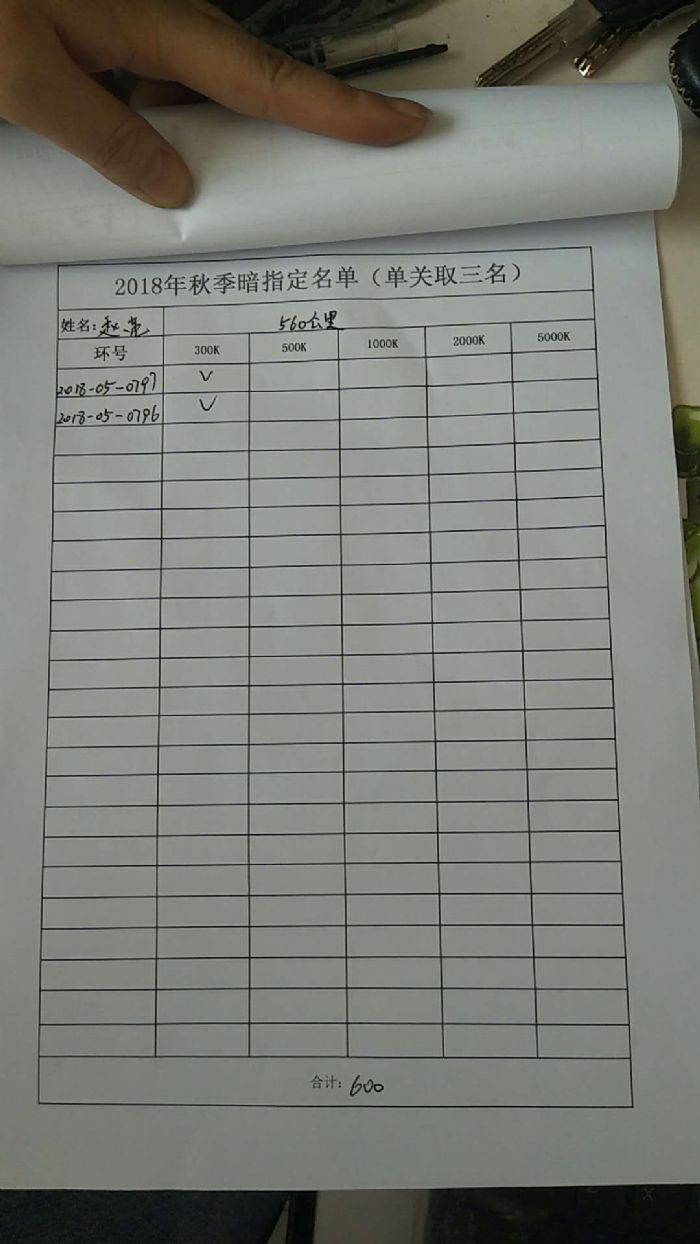 2018年秋季暗指定名单（单关取三名）
姓名：赵亮 560公里
环号 300K 500K 1000K 2000K 5000K
2018-05-0797 V
2018-05-0796 V
合计：600